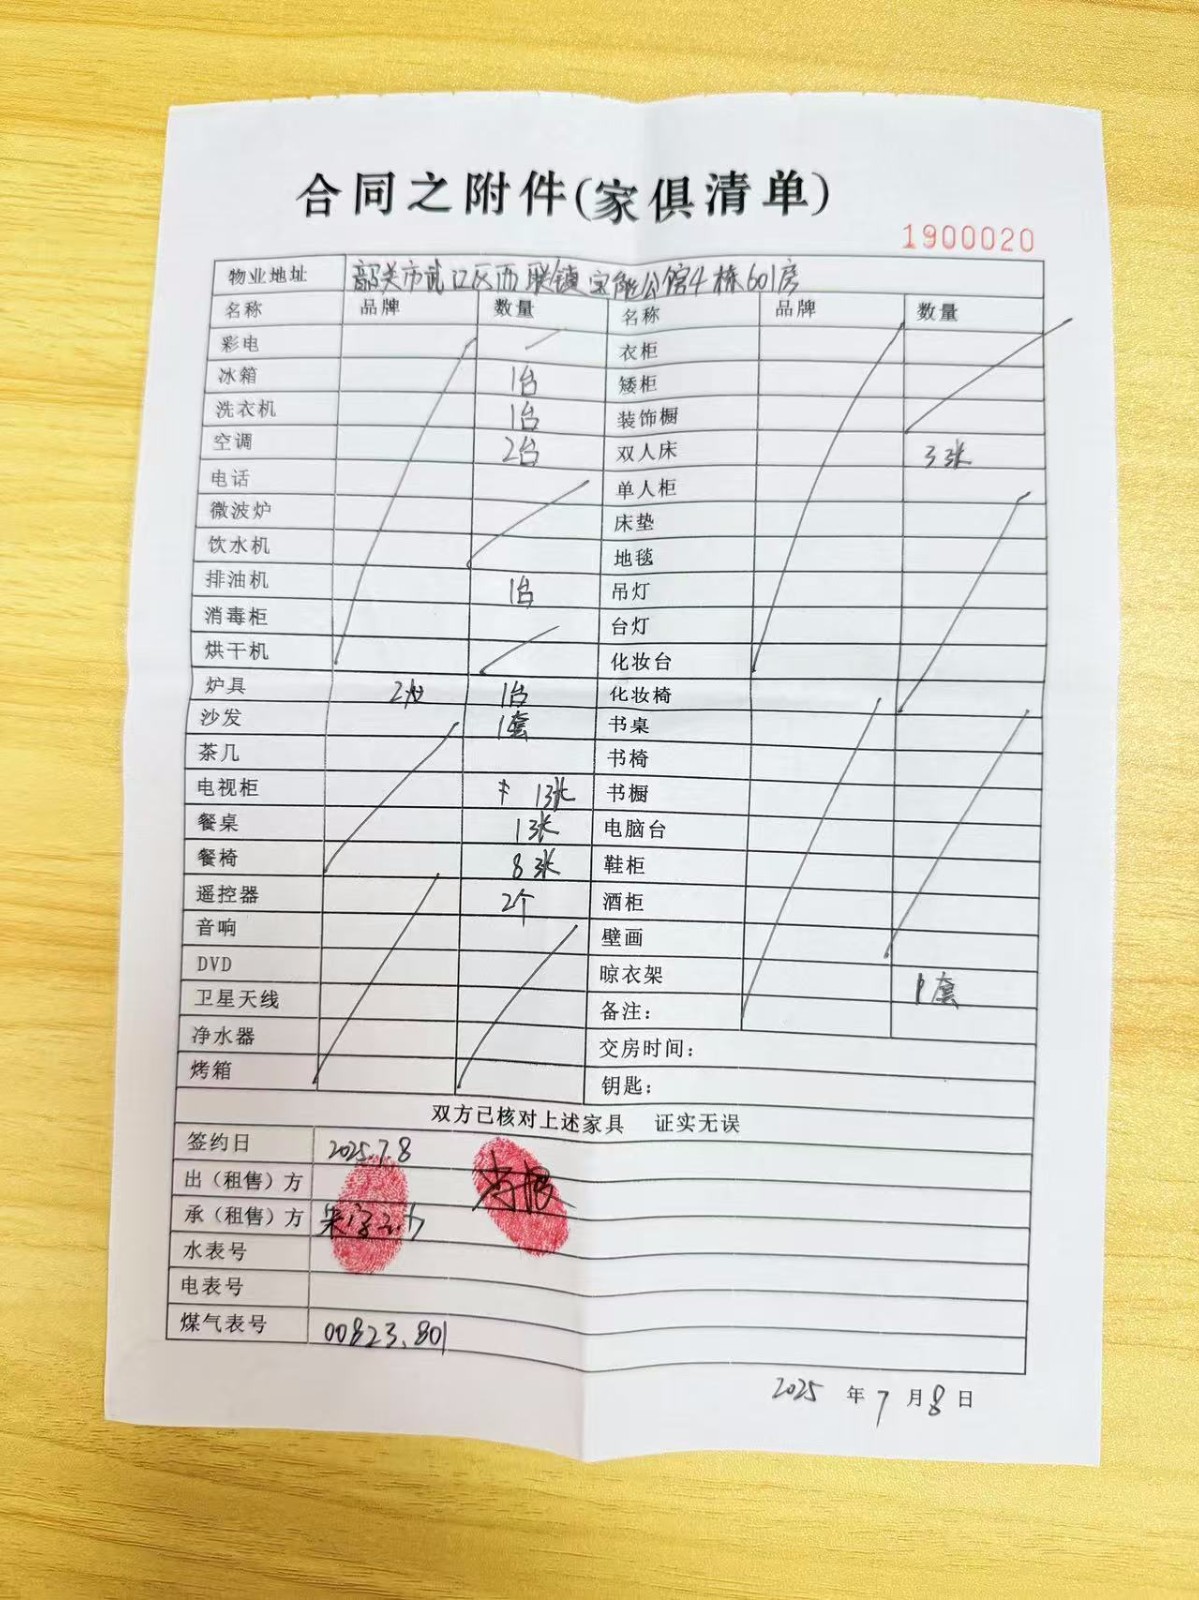 合同之附件(家俱清单)
1900020
物业地址 韶关市武江区西联镇宝能公馆4栋601房
名称 品牌 数量 名称 品牌 数量
彩电 衣柜
冰箱 1台 矮柜
洗衣机 1台 装饰橱
空调 2台 双人床 3张
电话 单人柜
微波炉 床垫
饮水机 地毯
排油机 1台 吊灯
消毒柜 台灯
烘干机 化妆台
炉具 1台 化妆椅
沙发 1套 书桌
茶几 书椅
电视柜 1张 书橱
餐桌 1张 电脑台
餐椅 8张 鞋柜
遥控器 2个 酒柜
音响 壁画
DVD 晾衣架 1套
卫星天线 备注:
净水器 交房时间:
烤箱 钥匙:
双方已核对上述家具 证实无误
签约日 2025.7.8
出(租售)方
承(租售)方
水表号
电表号
煤气表号 00823.801
2025 年 7 月 8 日